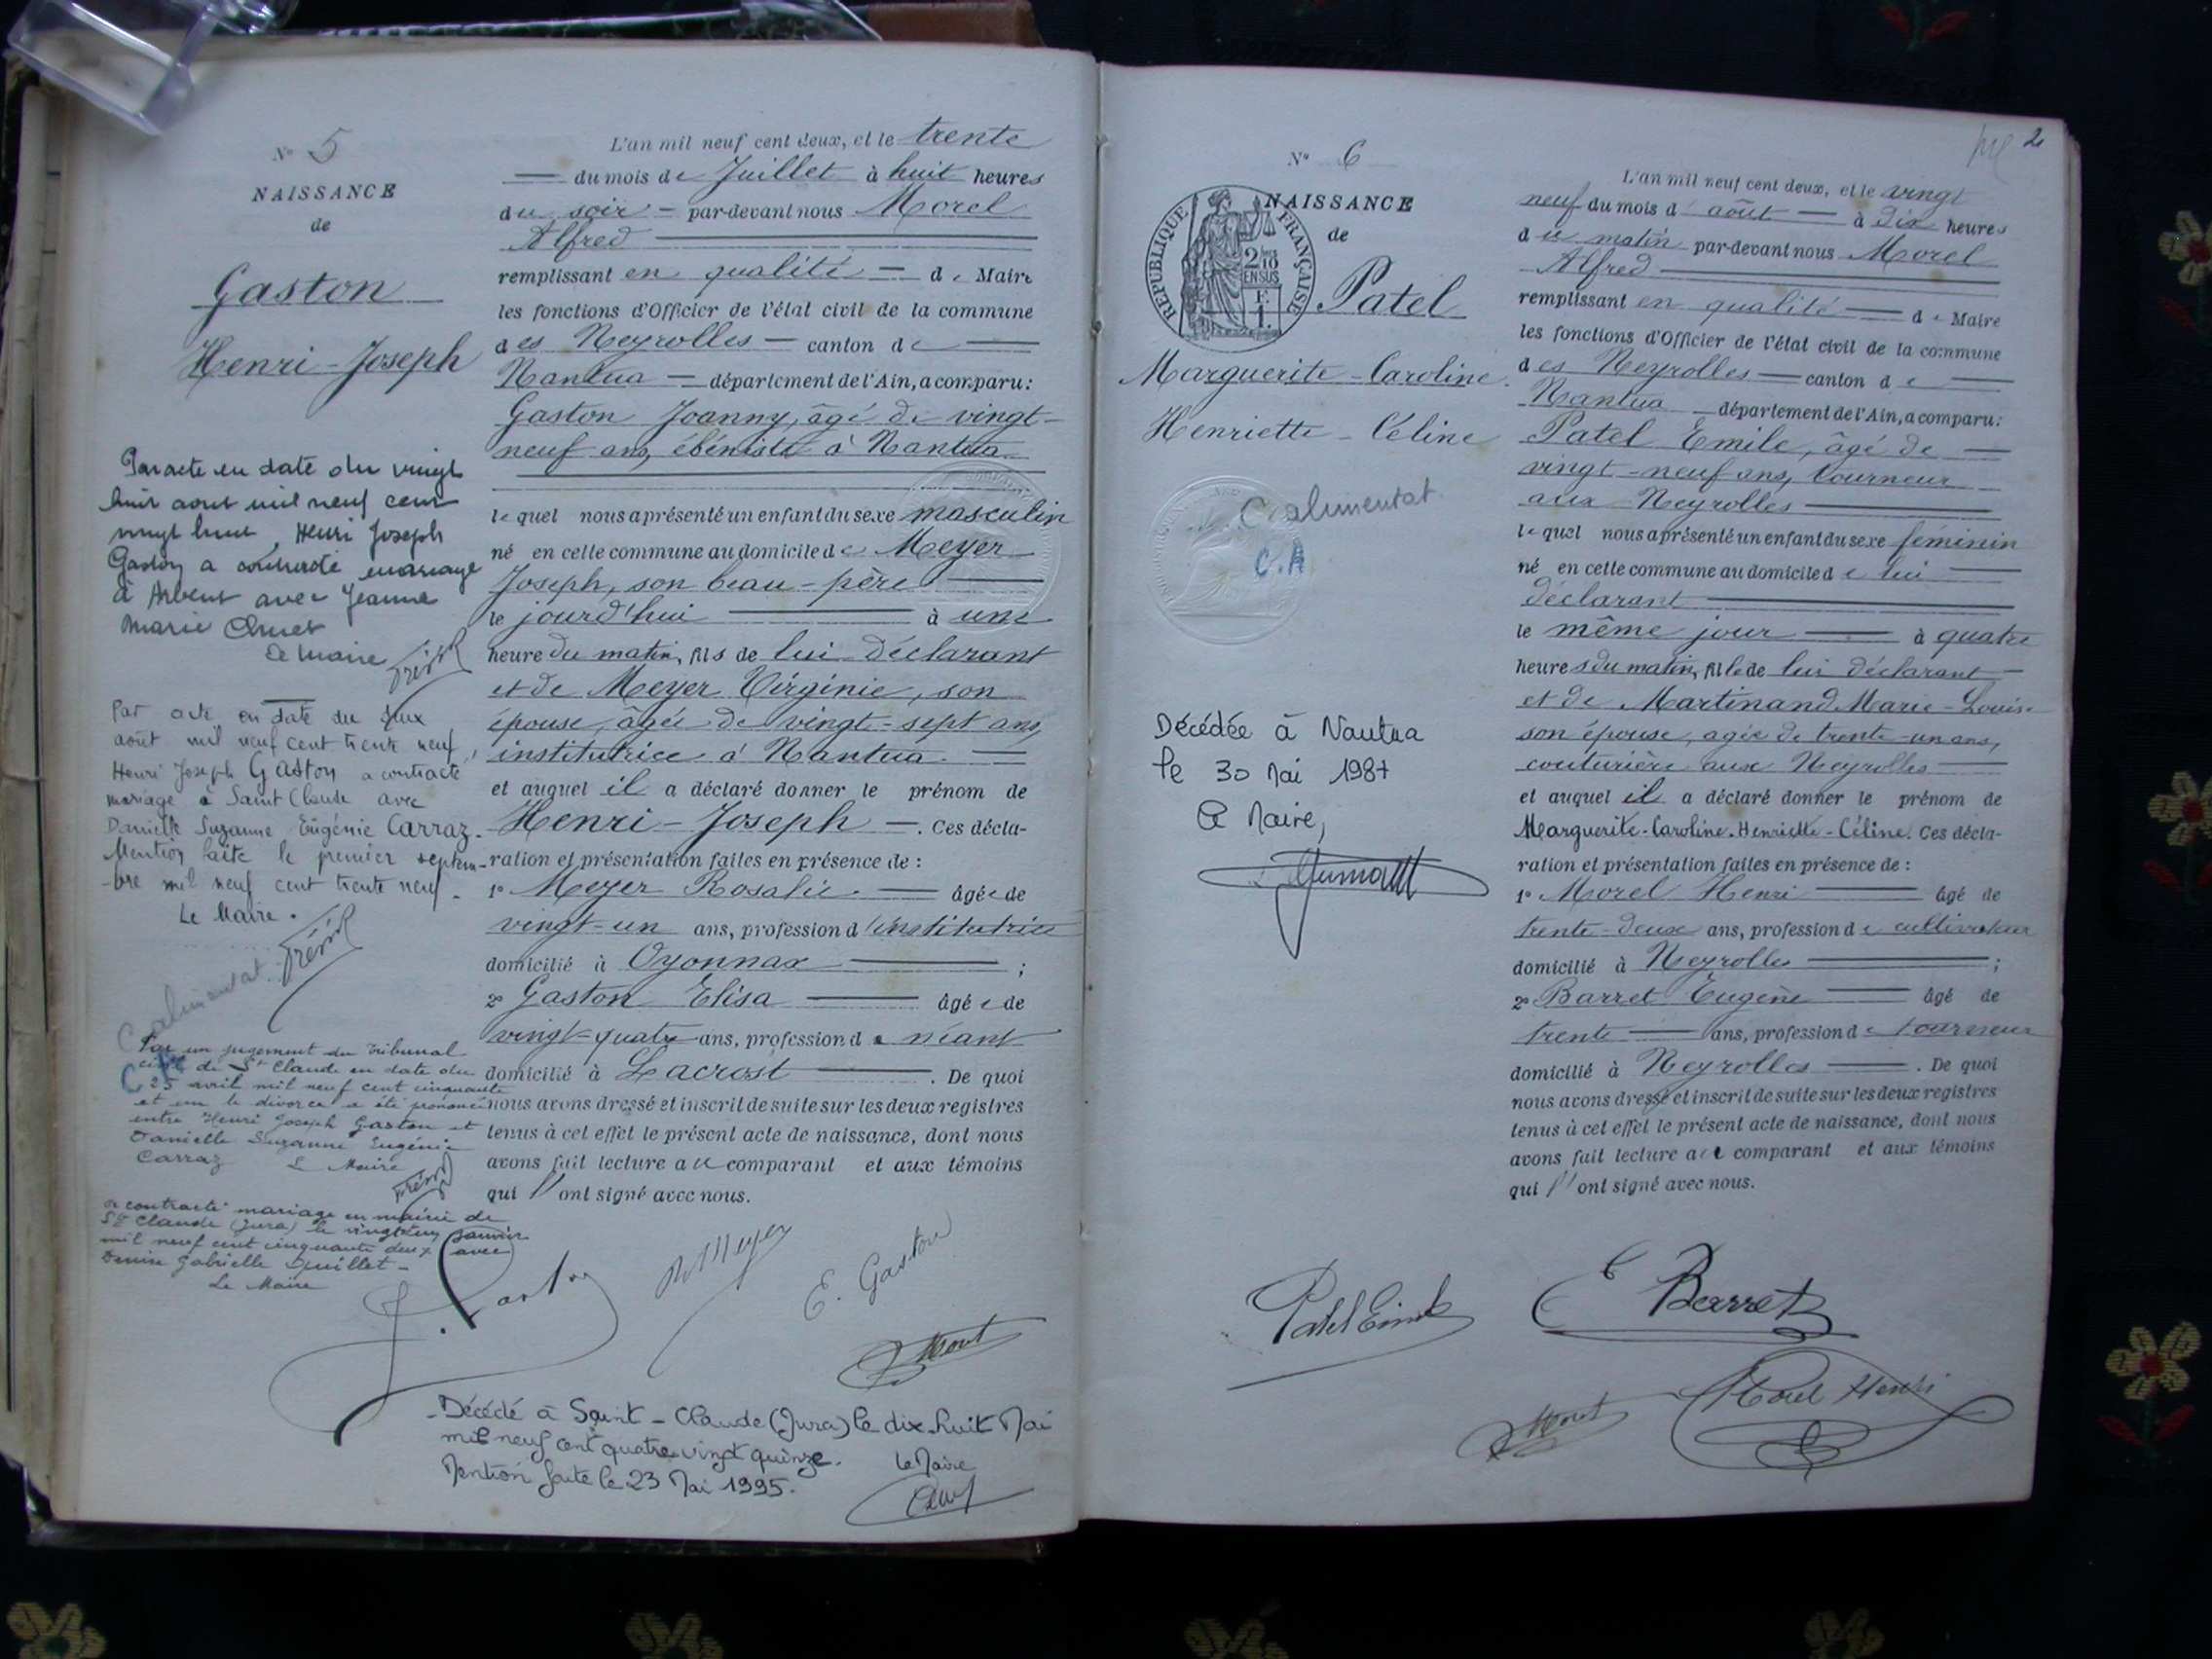 N° 5
NAISSANCE
de
Gaston
Henri-Joseph
Par acte en date du vingt
huit aout mil neuf cent
vingt huit, Henri Joseph
Gaston a contracté mariage
à Arbent avec Jeanne
Marie
Le Maire
Par acte en date du deux
août mil neuf cent trente neuf,
Henri Joseph Gaston a contracté
mariage à Saint Claude avec
Danielle Suzanne Eugénie Carraz.
Mention faite le premier septem-
-bre mil neuf cent trente neuf.
Le Maire.
C. alimentat.
Par un jugement du Tribunal
civil de St Claude en date du
25 avril mil neuf cent cinquante
et un le divorce a été prononcé
entre Henri Joseph Gaston et
Danielle Suzanne Eugénie
Carraz Le Maire
a contracté mariage en mairie de
St Claude (Jura) le vingt janvier
mil neuf cent cinquante deux avec
Denise Gabrielle
Le Maire
L'an mil neuf cent deux, et le trente
— du mois de Juillet à huit heures
du soir — par-devant nous Morel
Alfred
remplissant en qualité — de Maire
les fonctions d'Officier de l'état civil de la commune
des Neyrolles — canton de —
Nantua — département de l'Ain, a comparu :
Gaston Joanny, âgé de vingt-
neuf ans, ébéniste à Nantua
lequel nous a présenté un enfant du sexe masculin
né en cette commune au domicile de Meyer
Joseph, son beau-père —
le jourd'hui — à une
heure du matin, fils de lui déclarant
et de Meyer Virginie, son
épouse, âgée de vingt-sept ans,
institutrice à Nantua. —
et auquel il a déclaré donner le prénom de
Henri-Joseph —. Ces décla-
ration et présentation faites en présence de :
1° Meyer Rosalie. — âgée de
vingt-un ans, profession d'institutrice
domicilié à Oyonnax — ;
2° Gaston Elisa — âgée de
vingt-quatre ans, profession de néant
domicilié à Lacrost —. De quoi
nous avons dressé et inscrit de suite sur les deux registres
tenus à cet effet le présent acte de naissance, dont nous
avons fait lecture au comparant et aux témoins
qui l'ont signé avec nous.
J. Gaston
R. Meyer
E. Gaston
Morel
- Décédé à Saint-Claude (Jura) le dix huit Mai
mil neuf cent quatre vingt quinze. Le Maire
Mention faite le 23 Mai 1995.
2
N° 6
NAISSANCE
de
RÉPUBLIQUE FRANÇAISE
2/10
EN SUS
F.
1.
Patel
Marguerite-Caroline
Henriette-Céline
C alimentat
C.A
Décédée à Nantua
le 30 Mai 1987
Le Maire,
L'an mil neuf cent deux, et le vingt
neuf du mois d'août — à dix heures
du matin par-devant nous Morel
Alfred
remplissant en qualité — de Maire
les fonctions d'Officier de l'état civil de la commune
des Neyrolles — canton de —
Nantua — département de l'Ain, a comparu :
Patel Emile, âgé de —
vingt-neuf ans, tourneur
aux Neyrolles —
lequel nous a présenté un enfant du sexe féminin
né en cette commune au domicile de lui
déclarant —
le même jour — à quatre
heures du matin, fille de lui déclarant —
et de Martinand Marie-Louise
son épouse, agée de trente-un ans,
couturière aux Neyrolles —
et auquel il a déclaré donner le prénom de
Marguerite-Caroline-Henriette-Céline. Ces décla-
ration et présentation faites en présence de :
1° Morel Henri — âgé de
trente-deux ans, profession de cultivateur
domicilié à Neyrolles — ;
2° Barret Eugène — âgé de
trente — ans, profession de tourneur
domicilié à Neyrolles —. De quoi
nous avons dressé et inscrit de suite sur les deux registres
tenus à cet effet le présent acte de naissance, dont nous
avons fait lecture au comparant et aux témoins
qui l'ont signé avec nous.
Patel Emile
E Barret
Morel
Morel Henri